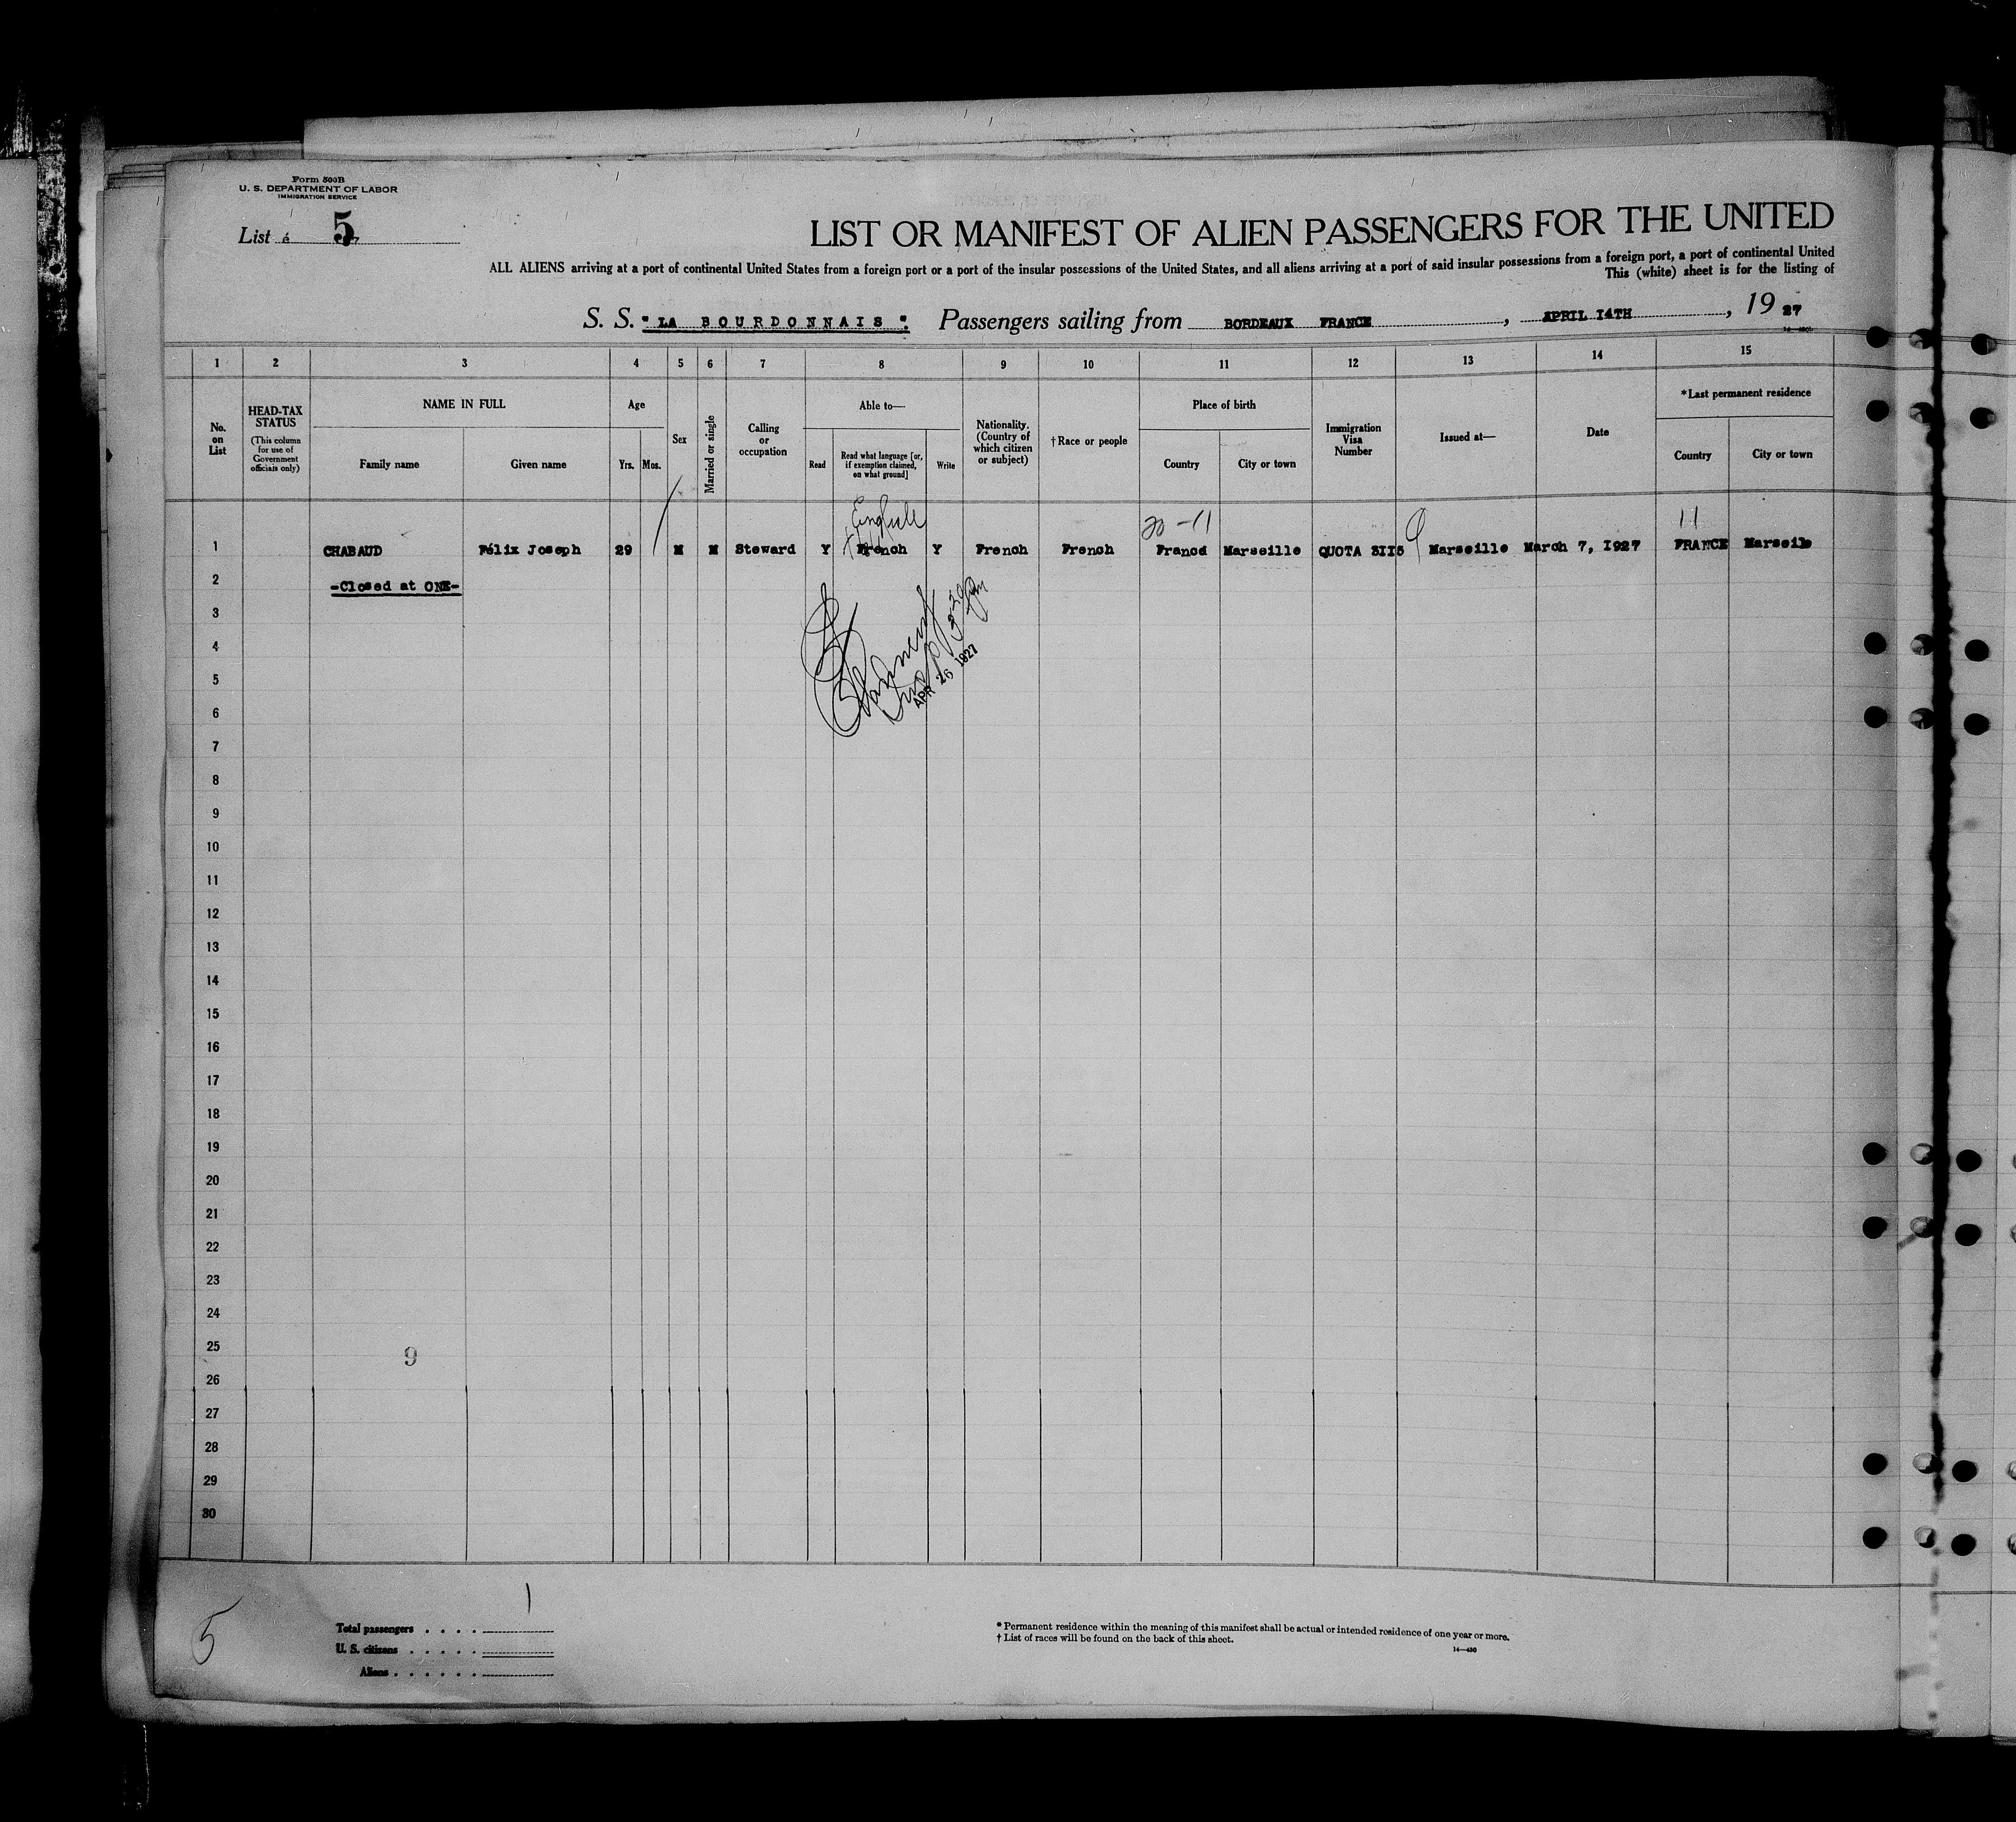 Form 500B
U. S. DEPARTMENT OF LABOR
IMMIGRATION SERVICE
List 5
LIST OR MANIFEST OF ALIEN PASSENGERS FOR THE UNITED
ALL ALIENS arriving at a port of continental United States from a foreign port or a port of the insular possessions of the United States, and all aliens arriving at a port of said insular possessions from a foreign port, a port of continental United
This (white) sheet is for the listing of
S. S. "LA BOURDONNAIS". Passengers sailing from BORDEAUX FRANCE, APRIL I4TH, 19 27
1 2 3 4 5 6 7 8 9 10 11 12 13 14 15
No. on List
HEAD-TAX STATUS
(This column for use of Government officials only)
NAME IN FULL
Family name
Given name
Age
Yrs. Mos.
Sex
Married or single
Calling or occupation
Able to—
Read
Read what language [or, if exemption claimed, on what ground]
Write
Nationality. (Country of which citizen or subject)
†Race or people
Place of birth
Country
City or town
Immigration Visa Number
Issued at—
Date
*Last permanent residence
Country
City or town
English
20-11
11
1 CHABAUD Félix Joseph 29 M M Steward Y French Y French French France Marseille QUOTA 3II5 Marseille March 7, I927 FRANCE Marseile
2 -Closed at ONE-
3
4
APR 26 1927
5
6
7
8
9
10
11
12
13
14
15
16
17
18
19
20
21
22
23
24
25
9
26
27
28
29
30
5
1
Total passengers . . . .
U. S. citizens . . . . .
Aliens . . . . . .
* Permanent residence within the meaning of this manifest shall be actual or intended residence of one year or more.
† List of races will be found on the back of this sheet.